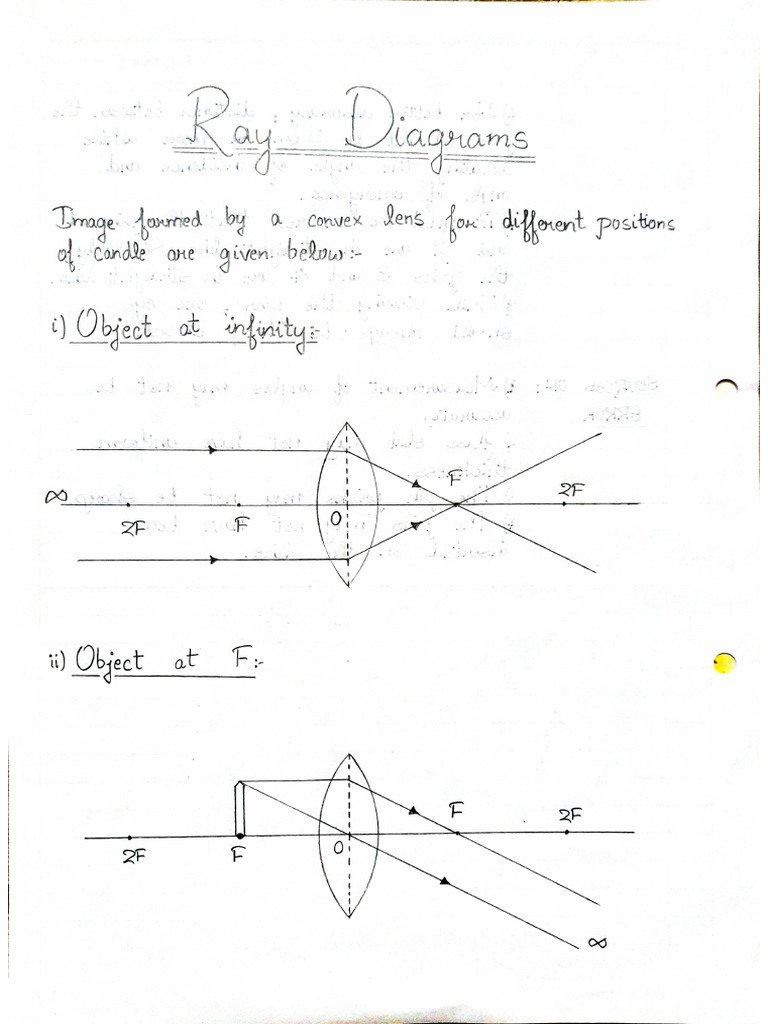 Ray Diagrams
Image formed by a convex lens for different positions
of candle are given below:-
i) Object at infinity:-
F
2F
∞
2F
F
O
ii) Object at F:-
F
2F
2F
F
O
∞